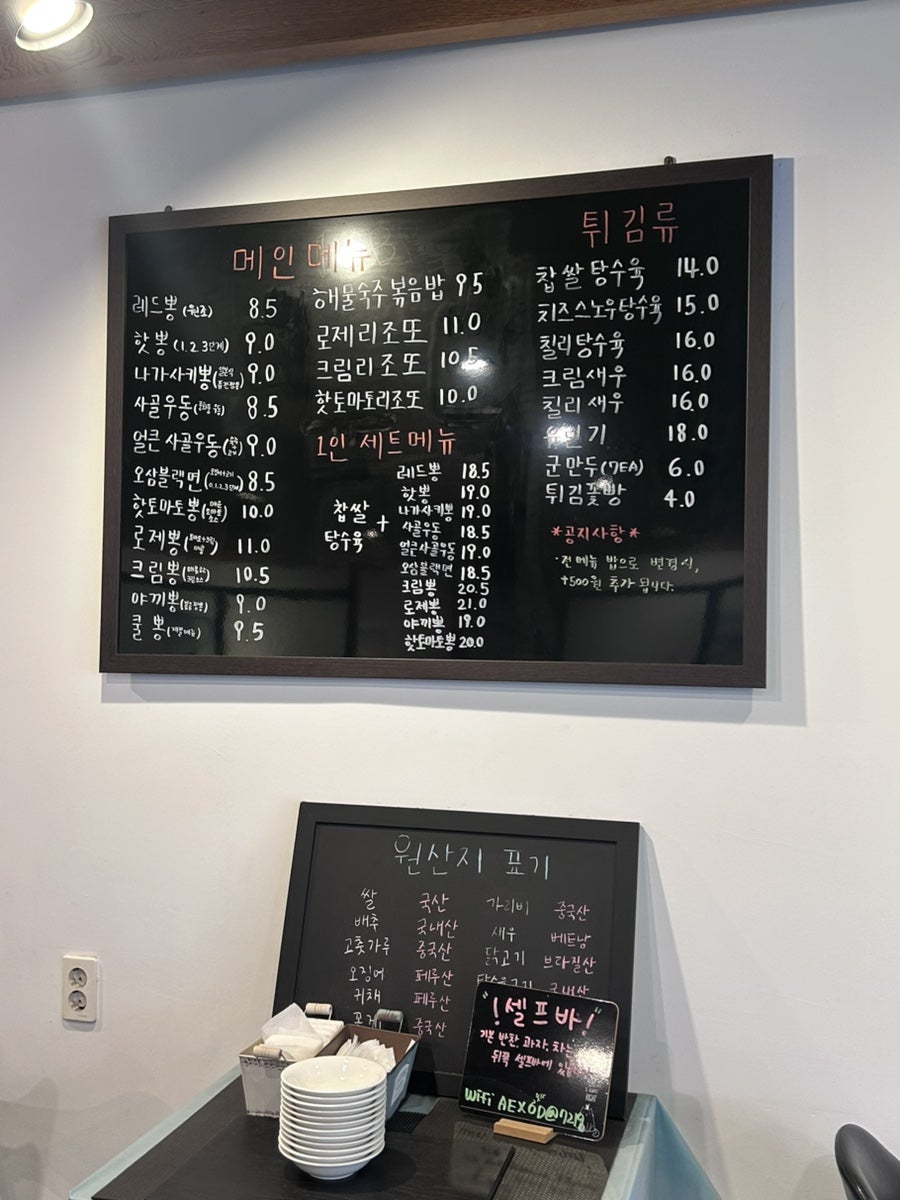 메인 메뉴
레드뽕 (원조) 8.5
핫뽕 (1.2.3단계) 9.0
나가사키뽕 9.0
사골우동 8.5
얼큰 사골우동 9.0
오삼블랙면 8.5
핫토마토뽕 10.0
로제뽕 11.0
크림뽕 10.5
야끼뽕 9.0
쿨뽕 9.5
해물숙주볶음밥 9.5
로제리조또 11.0
크림리조또 10.5
핫토마토리조또 10.0
1인 세트메뉴
찹쌀
탕수육
+
레드뽕 18.5
핫뽕 19.0
나가사키뽕 19.0
사골우동 18.5
얼큰사골우동 19.0
오삼블랙면 18.5
크림뽕 20.5
로제뽕 21.0
야끼뽕 19.0
핫토마토뽕 20.0
튀김류
찹쌀탕수육 14.0
치즈스노우탕수육 15.0
칠리탕수육 16.0
크림새우 16.0
칠리새우 16.0
18.0
군만두(7EA) 6.0
튀김꽃빵 4.0
*공지사항*
·전메뉴 밥으로 변경시,
+500원 추가 됩니다.
원산지 표기
쌀 국산
배추 국내산
고춧가루 중국산
오징어 페루산
귀채 페루산
중국산
가리비 중국산
새우 베트남
닭고기 브라질산
국내산
"!셀프바!"
기본 반찬, 과자, 차는
뒤쪽 셀프바에
WiFi